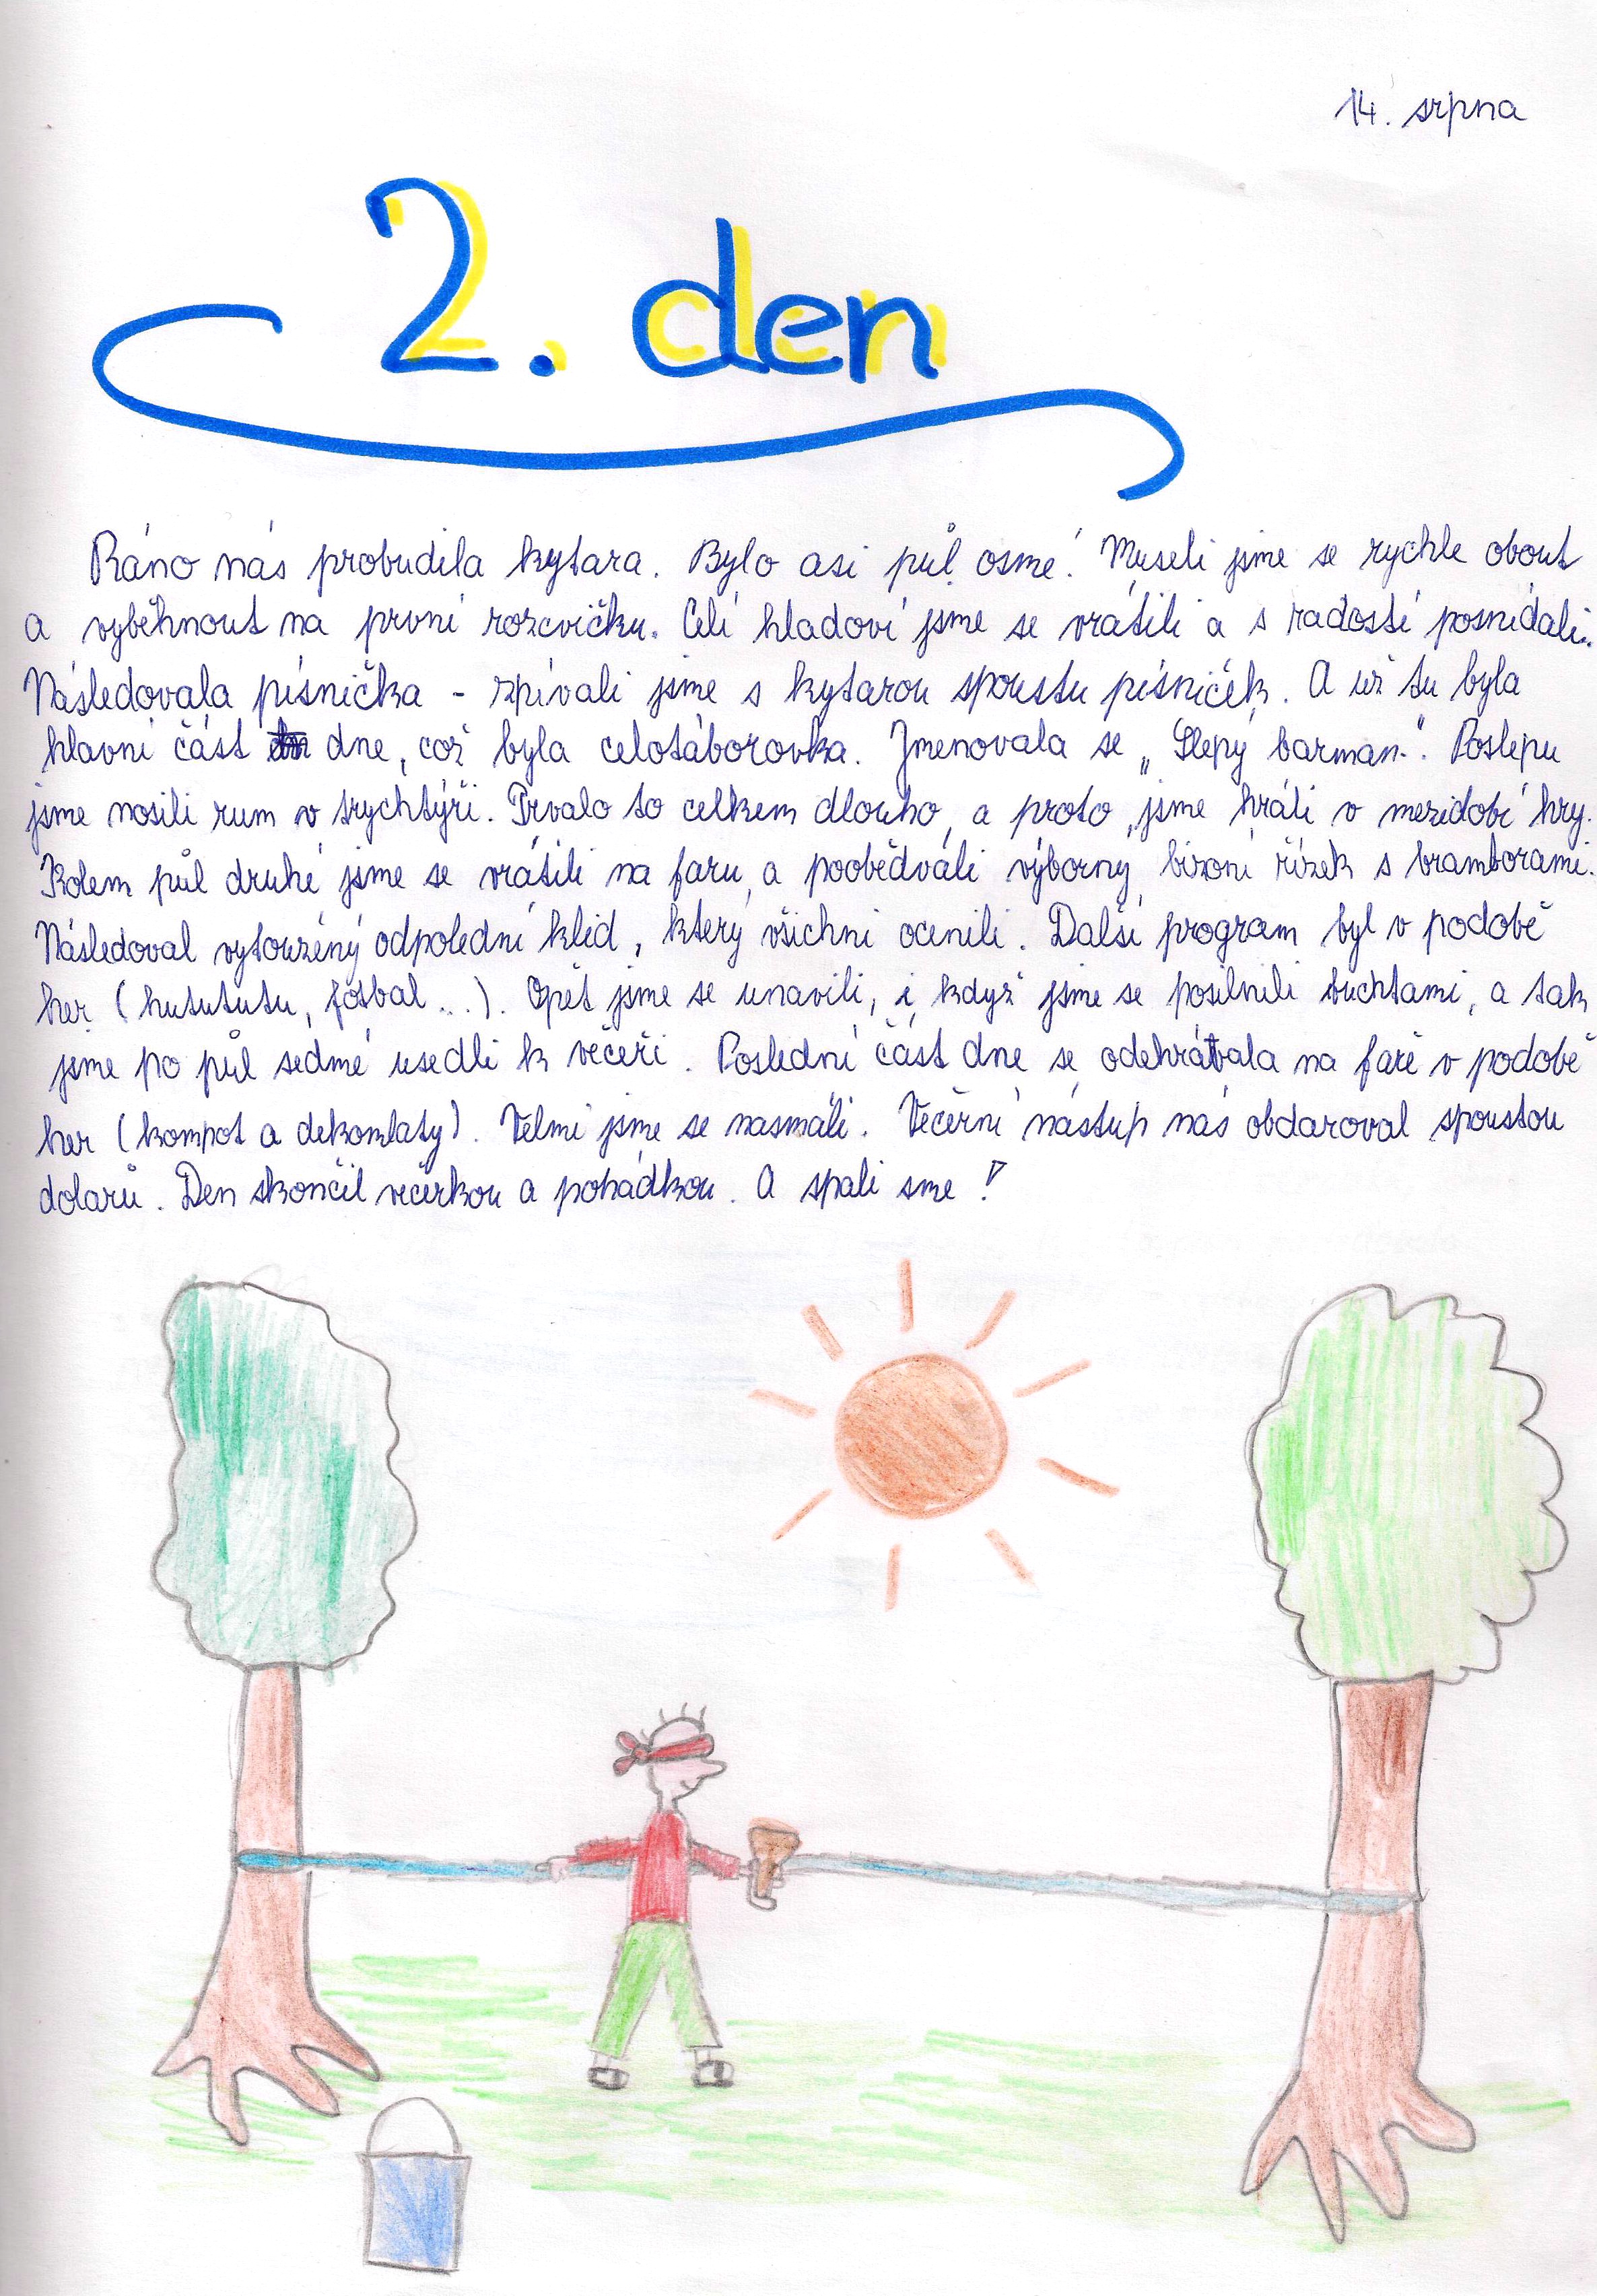 14. srpna
2. den
Ráno nás probudila kytara. Bylo asi půl osmé. Museli jsme se rychle obout
a vyběhnout na první rozcvičku. Celí hladoví jsme se vrátili a s radostí posnídali.
Následovala písnička - zpívali jsme s kytarou spoustu písniček. A už tu byla
hlavní část dne, což byla celotáborovka. Jmenovala se „Slepý barman“. Poslepu
jsme nosili rum v trychtýři. Trvalo to celkem dlouho, a proto jsme hráli v mezidobí hry.
Kolem půl druhé jsme se vrátili na faru a poobědvali výborný bizoní řízek s bramborami.
Následoval vytoužený odpolední klid, který všichni ocenili. Další program byl v podobě
her (hutututu, fotbal...). Opět jsme se unavili, i když jsme se posilnili buchtami, a tak
jsme po půl sedmé usedli k večeři. Poslední část dne se odehrávala na faře v podobě
her (kompot a dekomlaty). Velmi jsme se nasmáli. Večerní nástup nás obdaroval spoustou
dolarů. Den skončil večerkou a pohádkou. A spali sme!